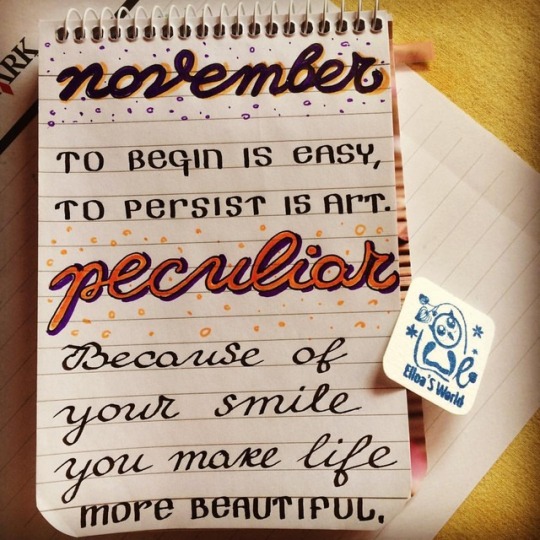 ARK
november
TO BEGIN IS EASY,
TO PERSIST IS ART.
peculiar
Because of
your smile
you make life
more BEAUTIFUL.
Elloa'S World